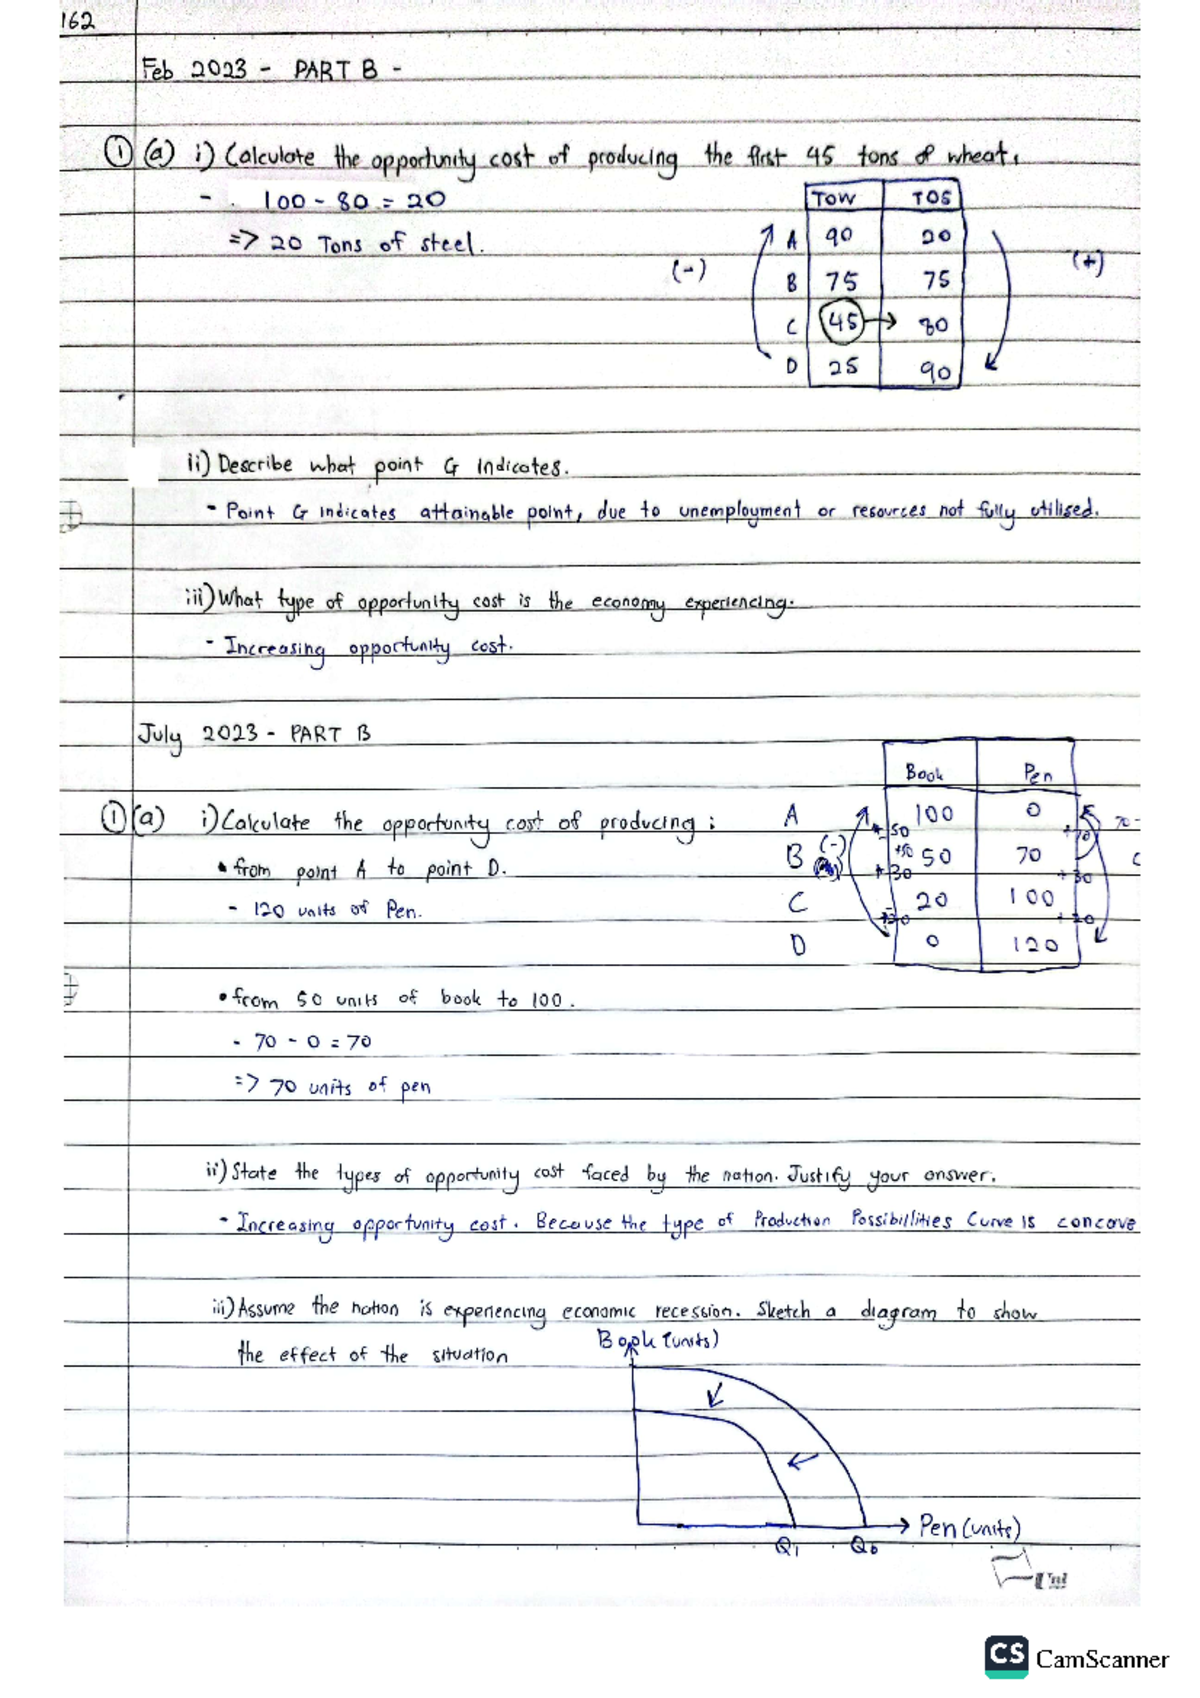 162
Feb 2023 - PART B -
① (a) i) Calculate the opportunity cost of producing the first 45 tons of wheat.
- . 100 - 80 = 20
=> 20 Tons of steel.
TOW TOS
A 90 20
B 75 75
C 45 → 80
D 25 90
(-) (+)
ii) Describe what point G indicates.
- Point G indicates attainable point, due to unemployment or resources not fully utilised.
iii) What type of opportunity cost is the economy experiencing.
- Increasing opportunity cost.
July 2023 - PART B
Book Pen
A 100 0
B 50 70
C 20 100
D 0 120
(-)
+50
+30
+30
+20
70 -
① (a) i) Calculate the opportunity cost of producing :
• from point A to point D.
- 120 units of Pen.
• from 50 units of book to 100.
- 70 - 0 = 70
=> 70 units of pen
ii) State the types of opportunity cost faced by the nation. Justify your answer.
- Increasing opportunity cost. Because the type of Production Possibillities Curve is concave
iii) Assume the nation is experiencing economic recession. Sketch a diagram to show
the effect of the situation
Book (units)
Pen (units)
Q1 Q0
CS CamScanner